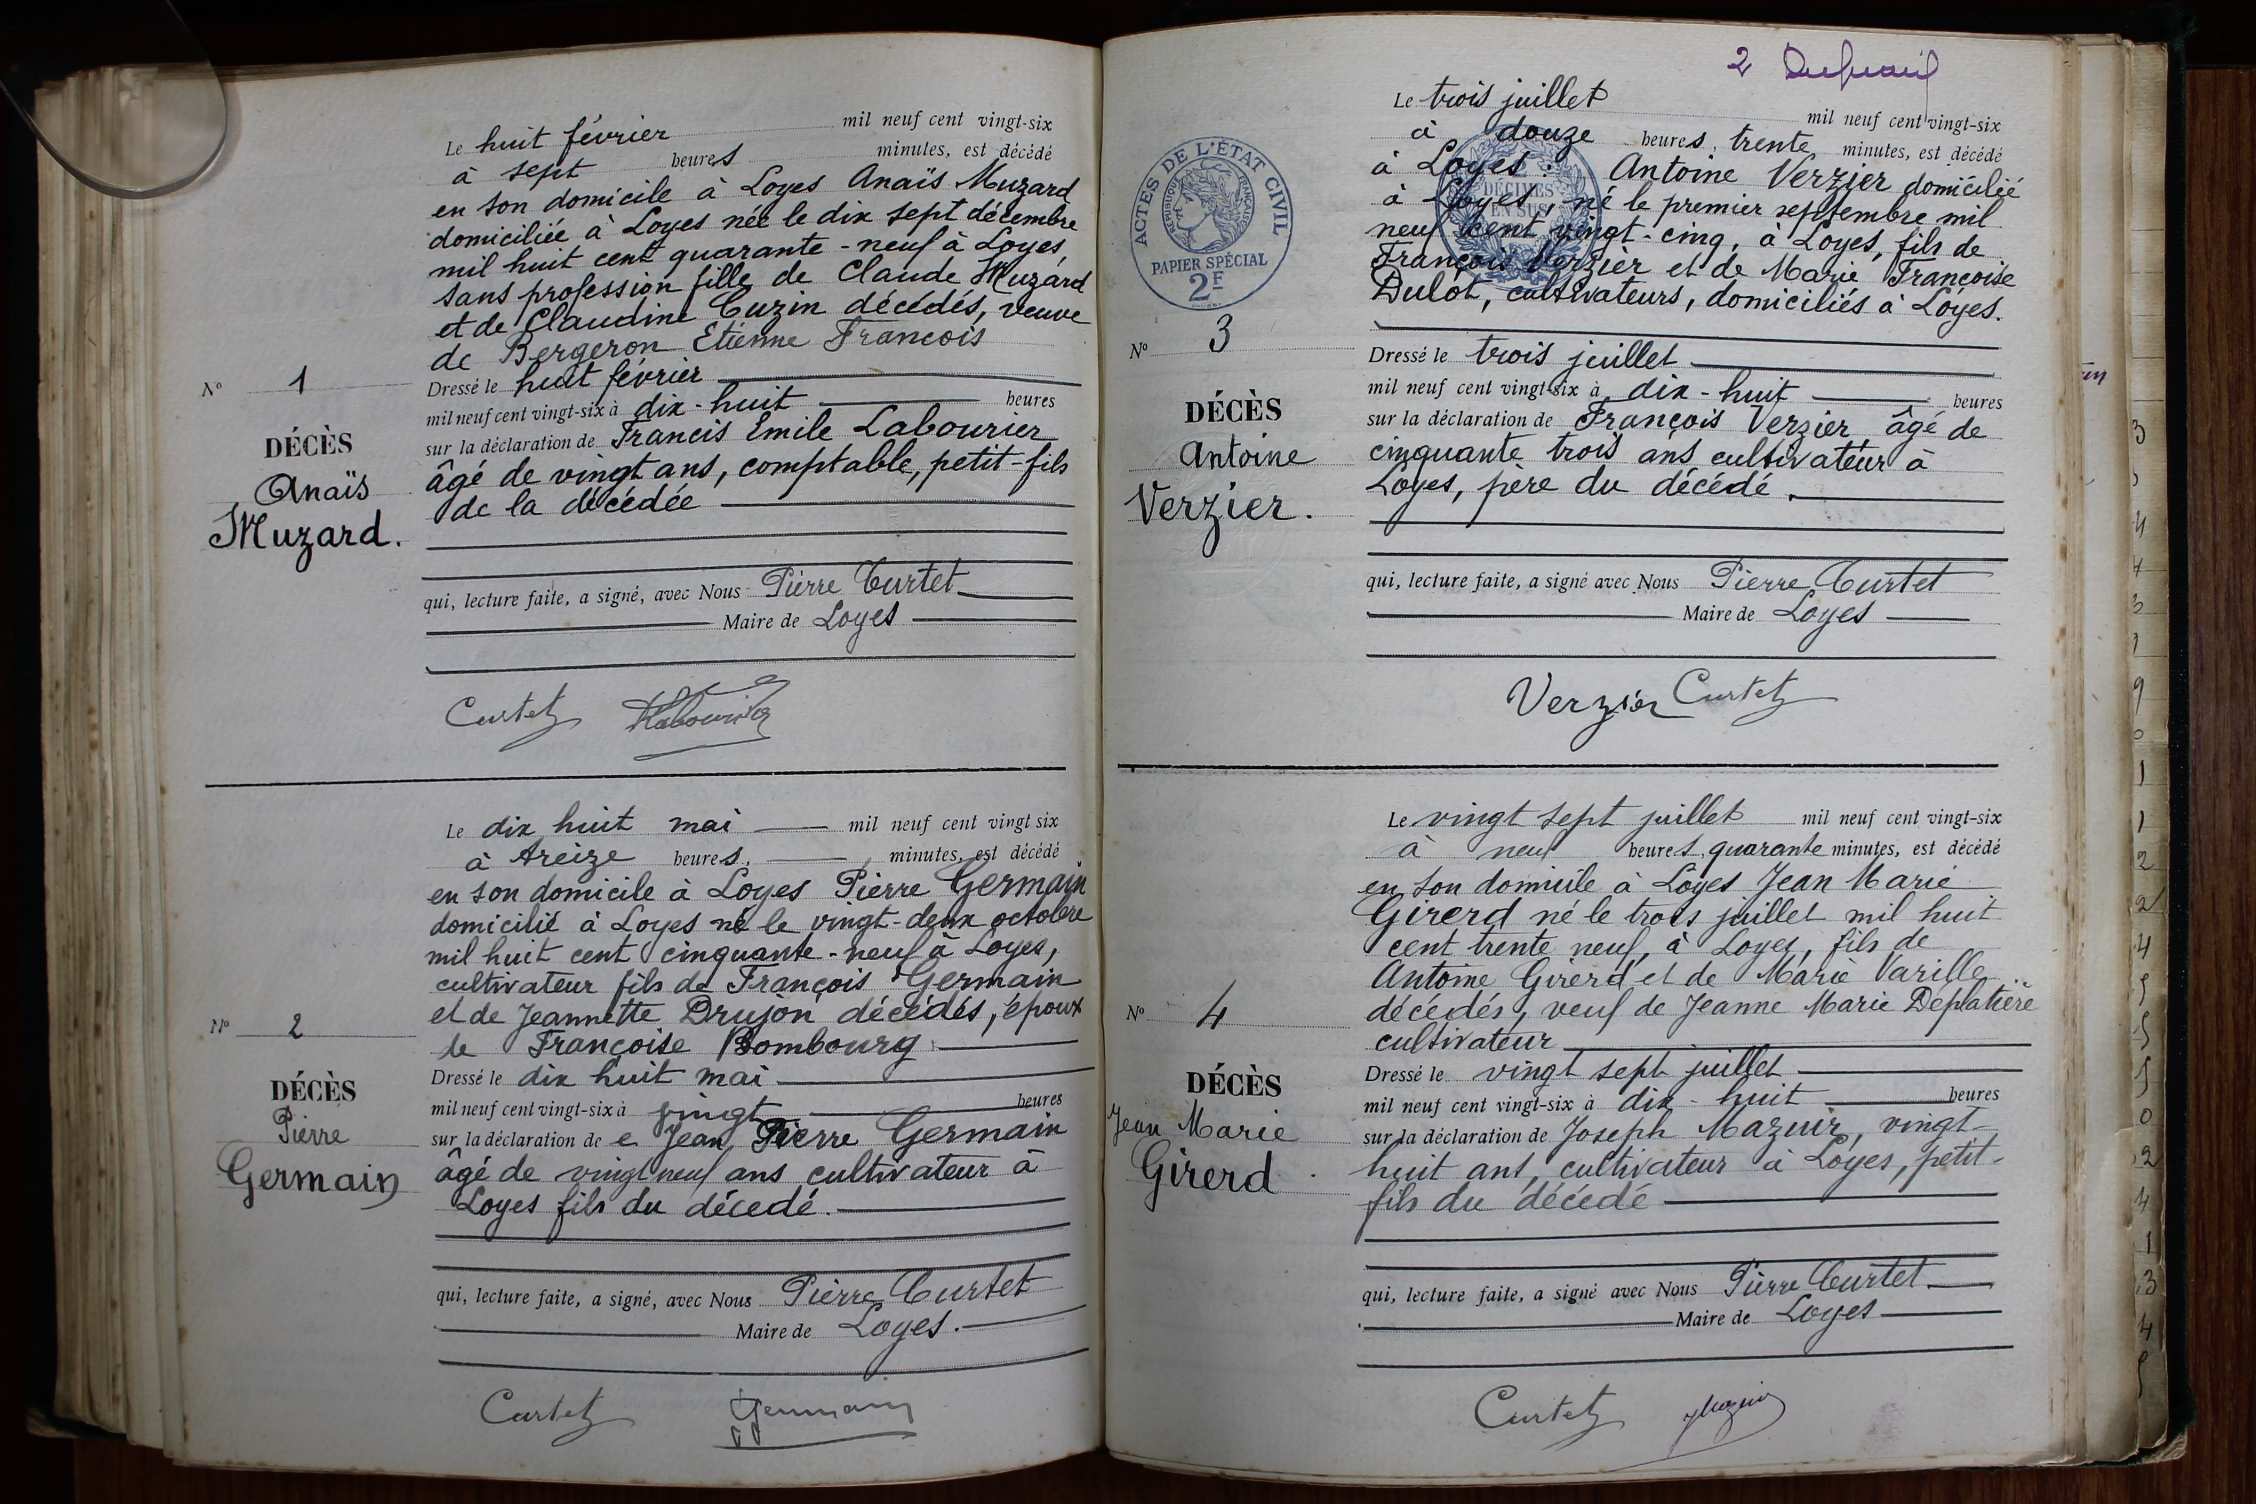 Le huit février mil neuf cent vingt-six
à sept heures minutes, est décédé
en son domicile à Loyes Anaïs Muzard
domiciliée à Loyes née le dix sept décembre
mil huit cent quarante-neuf à Loyes,
sans profession fille de Claude Muzard
et de Claudine Cuzin décédés, veuve
de Bergeron Etienne François
Nº 1
DÉCÈS
Anaïs
Muzard.
Dressé le huit février
mil neuf cent vingt-six à dix-huit heures
sur la déclaration de Francis Emile Labourier
âgé de vingt ans, comptable, petit-fils
de la décédée
qui, lecture faite, a signé, avec Nous Pierre Curtet
Maire de Loyes
Curtet Labourier
Le dix huit mai mil neuf cent vingt six
à treize heures, minutes, est décédé
en son domicile à Loyes Pierre Germain
domicilié à Loyes né le vingt-deux octobre
mil huit cent cinquante-neuf à Loyes,
cultivateur fils de François Germain
et de Jeannette Drujon décédés, époux
de Françoise Bombourg
Nº 2
DÉCÈS
Pierre
Germain
Dressé le dix huit mai
mil neuf cent vingt-six à vingt heures
sur la déclaration de e Jean Pierre Germain
âgé de vingt neuf ans cultivateur à
Loyes fils du décédé.
qui, lecture faite, a signé, avec Nous Pierre Curtet
Maire de Loyes.
Curtet Germain
2
ACTES DE L'ÉTAT CIVIL
RÉPUBLIQUE FRANÇAISE
PAPIER SPÉCIAL
2F
DÉCIMES
EN SUS
Le trois juillet mil neuf cent vingt-six
à douze heures, trente minutes, est décédé
à Loyes: Antoine Verzier domicilié
à Loyes, né le premier septembre mil
neuf cent vingt-cinq, à Loyes, fils de
François Verzier et de Marie Françoise
Dulot, cultivateurs, domiciliés à Loyes.
Nº 3
DÉCÈS
Antoine
Verzier.
Dressé le trois juillet
mil neuf cent vingt-six à dix-huit heures
sur la déclaration de François Verzier âgé de
cinquante trois ans cultivateur à
Loyes, père du décédé.
qui, lecture faite, a signé avec Nous Pierre Curtet
Maire de Loyes
Verzier Curtet
Le vingt sept juillet mil neuf cent vingt-six
à neuf heures, quarante minutes, est décédé
en son domicile à Loyes Jean Marie
Girerd né le trois juillet mil huit
cent trente neuf, à Loyes, fils de
Antoine Girerd et de Marie Varille
décédés, veuf de Jeanne Marie Déplatière
cultivateur
Nº 4
DÉCÈS
Jean Marie
Girerd
Dressé le vingt sept juillet
mil neuf cent vingt-six à dix-huit heures
sur la déclaration de Joseph Mazuir, vingt-
huit ans, cultivateur à Loyes, petit-
fils du décédé
qui, lecture faite, a signé avec Nous Pierre Curtet
Maire de Loyes
Curtet Mazuir